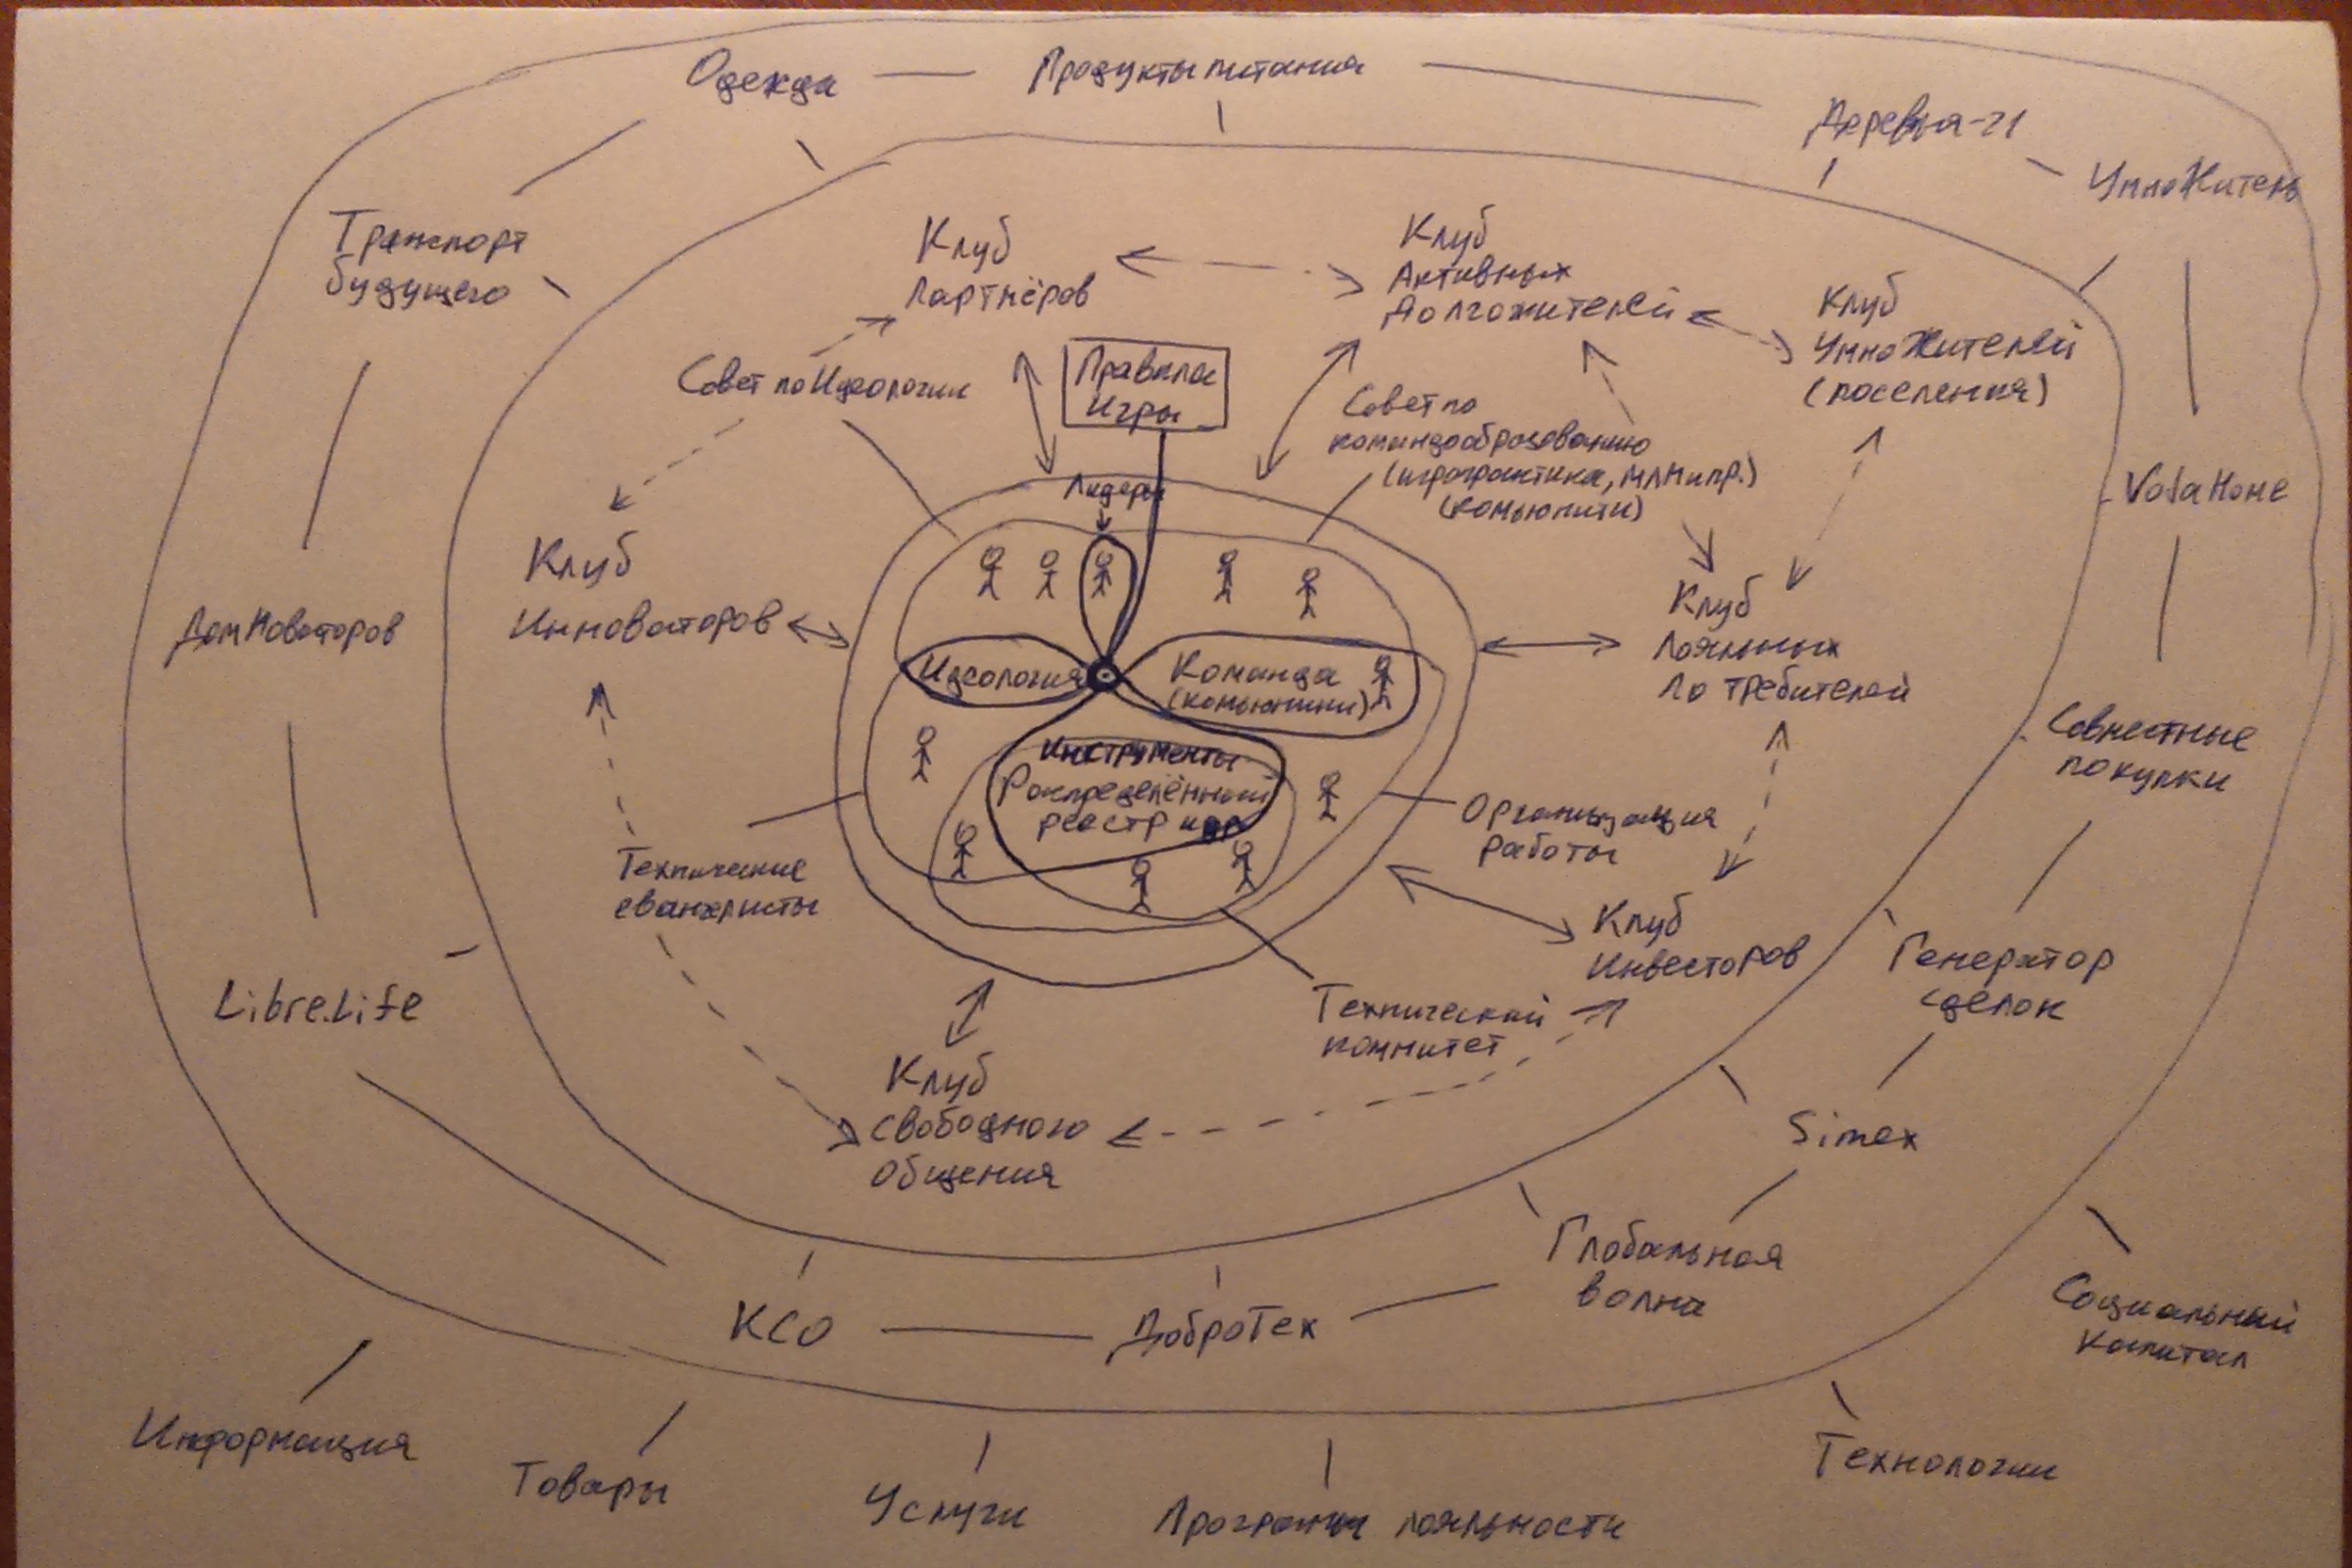 Одежда
Продукты питания
Деревня-21
УмноЖитель
Транспорт
будущего
Клуб
Партнёров
Клуб
Активных
Долгожителей
Клуб
УмноЖителей
(поселения)
Совет по Идеологии
Правила
Игры
Совет по
командообразованию
(игропрактика, МЛМ и пр.)
(комьюнити)
Лидеры
VodaHome
Клуб
Инноваторов
ДомНоваторов
Идеология
Команда
(комьюнити)
Клуб
Лояльных
Потребителей
Инструменты
Распределённый
реестр и др
Совместные
покупки
Организация
работы
Технические
евангелисты
Клуб
Инвесторов
Генератор
сделок
Libre.Life
Технический
комитет
Клуб
свободного
общения
Simex
Глобальная
волна
КСО
ДоброТех
Социальный
капитал
Информация
Товары
Услуги
Программы лояльности
Технологии